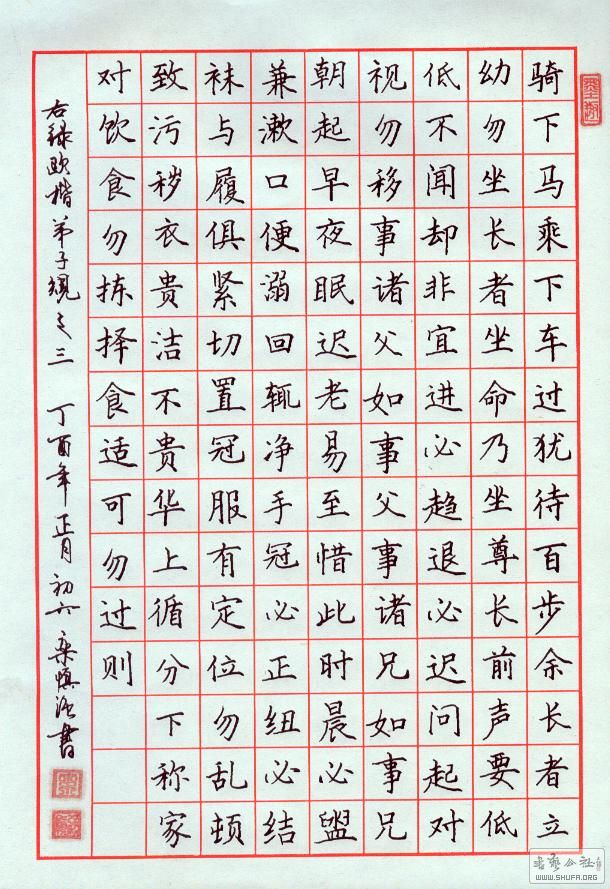 骑下马乘下车过犹待百步余长者立
幼勿坐长者坐命乃坐尊长前声要低
低不闻却非宜进必趋退必迟问起对
视勿移事诸父如事父事诸兄如事兄
朝起早夜眠迟老易至惜此时晨必盥
兼漱口便溺回辄净手冠必正纽必结
袜与履俱紧切置冠服有定位勿乱顿
致污秽衣贵洁不贵华上循分下称家
对饮食勿拣择食适可勿过则
右录欧楷弟子规之三 丁酉年正月初六 书
书艺公社
WWW.SHUFA.ORG